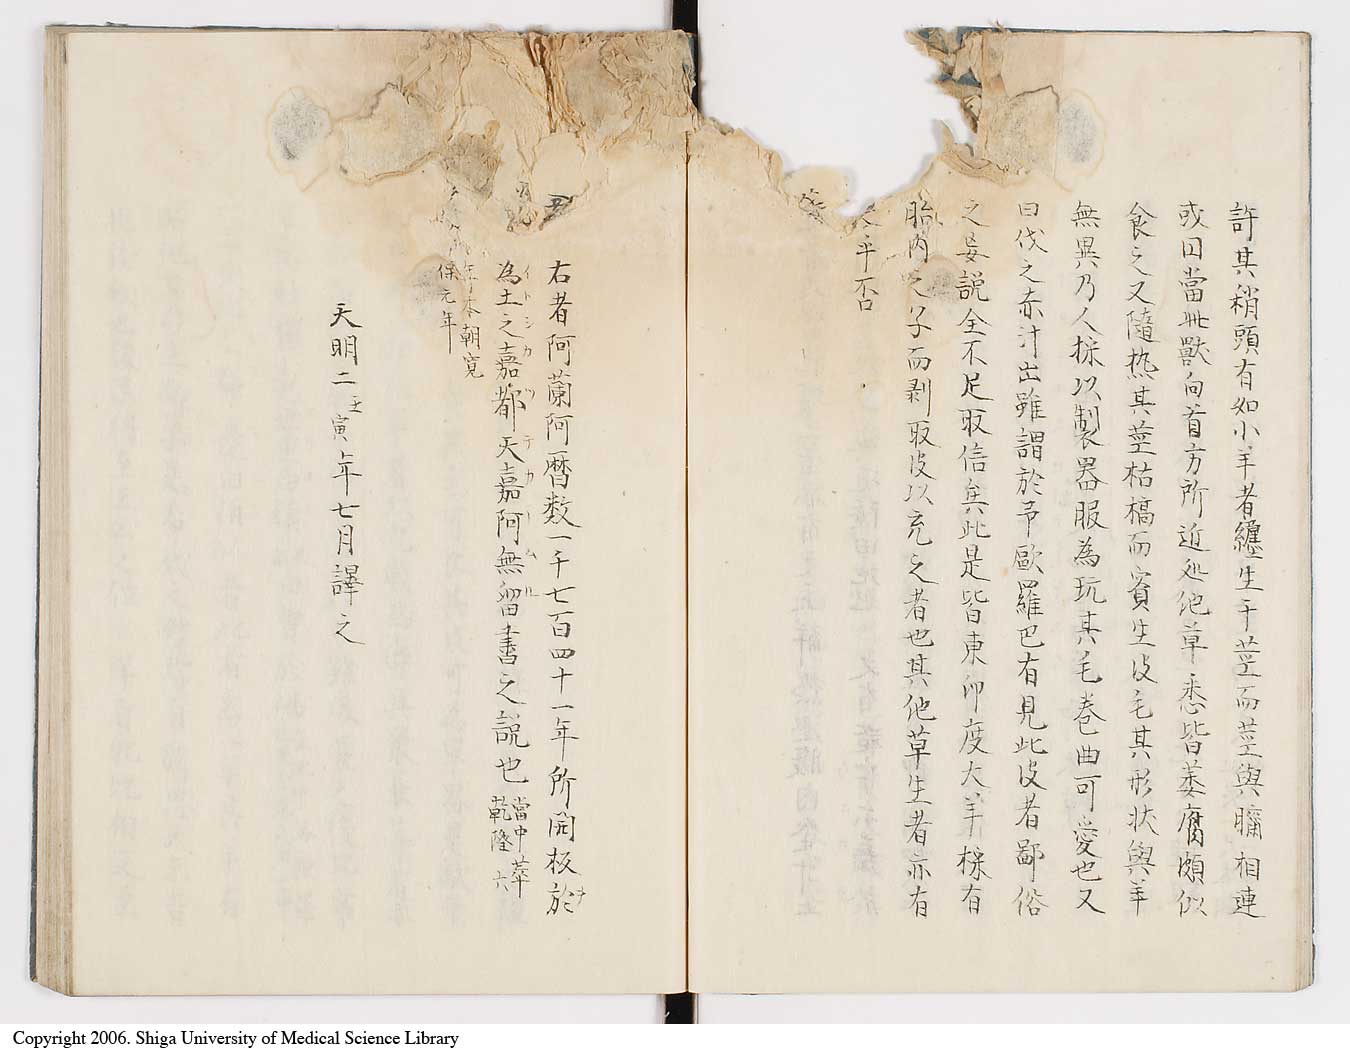 許其稍頭有如小羊者纏生于莖而莖與臍相連
或因當此獣向首方所近処他草悉皆萎腐頗似
食之又隨熱其莖枯槁而賓生皮毛其形状與羊
無異乃人採以製器服為玩其毛巻曲可愛也又
曰伐之赤汁出雖謂於予歐羅巴有見此皮者鄙俗
之妄説全不足取信矣此是皆東印度大羊採有
胎内之子而剥取皮以充之者也其他草生者亦有
乎否
右者阿蘭阿暦数一千七百四十一年所開板於
為土之嘉都天嘉阿無留書之説也
イトシカツテカアムル
當中華
乾隆六
年本朝寛
保元年
天明二壬寅年七月譯之
Copyright 2006. Shiga University of Medical Science Library